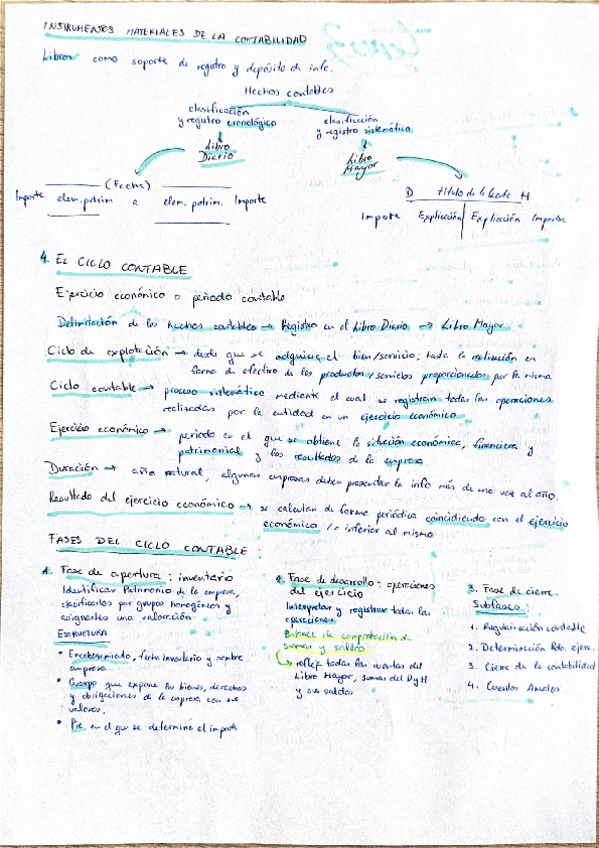 INSTRUMENTOS MATERIALES DE LA CONTABILIDAD
Libros como soporte de registro y depósito de info.
Hechos contables
clasificación
y registro cronológico
clasificación
y registro sistemático
Libro
Diario
Libro
Mayor
(Fecha)
Importe elem. patrim. a elem. patrim. Importe
D título de la cuenta H
Importe Explicación Explicación Importe
4. EL CICLO CONTABLE
Ejercicio económico o periodo contable
Delimitación de los hechos contables → Registro en el Libro Diario → Libro Mayor
Ciclo de explotación → desde que se adquiere el bien/servicio, hasta la realización en
forma de efectivo de los productos/servicios proporcionados por la misma
Ciclo contable → proceso sistemático mediante el cual se registran todas las operaciones
realizadas por la entidad en un ejercicio económico
Ejercicio económico → periodo en el que se obtiene la situación económica, financiera y
patrimonial y los resultados de la empresa.
Duración → año natural, algunas empresas deben presentar la info más de una vez al año.
Resultado del ejercicio económico → se calculan de forma periódica coincidiendo con el ejercicio
económico / o inferior al mismo
FASES DEL CICLO CONTABLE :
1. Fase de apertura : inventario
Identificar Patrimonio de la empresa,
clasificarlos por grupos homogéneos y
asignarles una valoración
ESTRUCTURA
• Encabezado, fecha inventario y nombre
empresa.
• Cuerpo que expone los bienes, derechos
y obligaciones de la empresa con sus
valores.
• Pie, en el que se determina el importe
2. Fase de desarrollo : operaciones
del ejercicio
Interpretar y registrar todas las
operaciones
Balance de comprobación de
sumas y saldos
refleja todas las cuentas del
Libro Mayor, sumas del D y H
y sus saldos
3. Fase de cierre
Subfases :
1. Regularización contable
2. Determinación Rdo. ejerc.
3. Cierre de la contabilidad
4. Cuentas Anuales